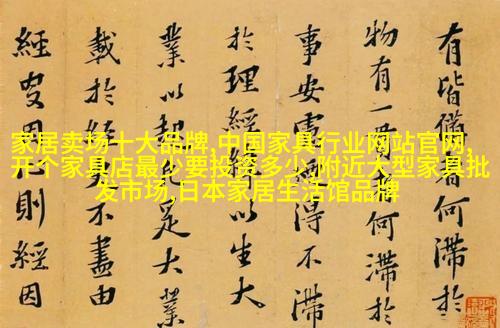 家居卖场十大品牌,中国家具行业网站官网,
开个家具店最少要投资多少,附近大型家具批
发市场,日本家居生活馆品牌
有皆備者何滯於
物有一何滯於
事安得不滯
於理經以生大
業以起足大業
載於不盡由
經因則經因